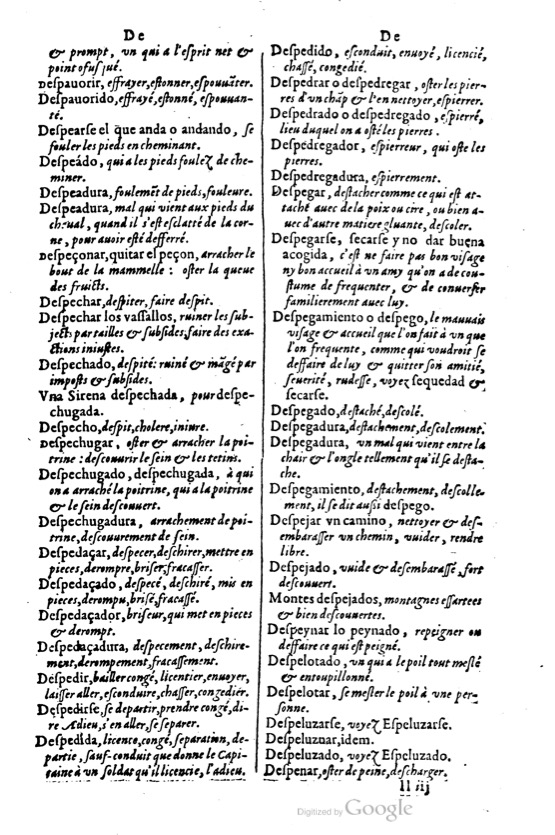 De
& prompt, vn qui a l'esprit net &
point ofusqué.
Despauorir, effrayer, estonner, espouuāter.
Despauorido, effrayé, estonné, espouuan-
té.
Despearse el que anda o andando, se
fouler les pieds en cheminant.
Despeádo, qui a les pieds foulez de che-
miner.
Despeadura, foulemēt de pieds, fouleure.
Despeadura, mal qui vient aux pieds du
cheual, quand il s'est esclatté de la cor-
ne, pour auoir esté defferré.
Despeçonar, quitar el peçon, arracher le
bout de la mammelle : oster la queue
des fruicts.
Despechar, despiter, faire despit.
Despechar los vassallos, ruiner les sub-
jects par tailles & subsides, faire des exa-
ctions iniustes.
Despechado, despité: ruiné & māgé par
imposts & subsides.
Vna Sirena despechada, pour despe-
chugada.
Despecho, despit, cholere, iniure.
Despechugar, oster & arracher la poi-
trine : descouurir le sein & les tetins.
Despechugado, despechugada, à qui
on a arraché la poitrine, qui a la poitrine
& le sein descouuert.
Despechugadura, arrachement de poi-
trine, descouurement de sein.
Despedaçar, despecer, deschirer, mettre en
pieces, derompre, briser, fracasser.
Despedaçado, despecé, deschiré, mis en
pieces, derompu, brisé, fracassé.
Despedaçador, briseur, qui met en pieces
& derompt.
Despedaçadura, despecement, deschire-
ment, derompement, fracassement.
Despedir, bailler congé, licentier, enuoyer,
laisser aller, esconduire, chasser, congedier.
Despedirse, se departir, prendre congé, di-
re Adieu, s'en aller, se separer.
Despedida, licence, congé, separation, de-
partie, sauf-conduit que donne le Capi-
taine à vn soldat qu'il licencie, l'adieu.
De
Despedido, esconduit, enuoyé, licencié,
chassé, congedié.
Despedrar o despedregar, oster les pier-
res d'vn chāp & l'en nettoyer, espierrer.
Despedrado o despedregado, espierré,
lieu duquel on a osté les pierres.
Despedregador, espierreur, qui oste les
pierres.
Despedregadura, espierrement.
Despegar, destacher comme ce qui est at-
taché auec de la poix ou cire, ou bien a-
uec d'autre matiere gluante, descoler.
Despegarse, secarse y no dar buena
acogida, c'est ne faire pas bon visage
ny bon accueil à vn amy qu'on a de cou-
stume de frequenter, & de conuerser
familierement auec luy.
Despegamiento o despego, le mauuais
visage & accueil que l'on fait à vn que
l'on frequente, comme qui voudroit se
deffaire de luy & quitter son amitié,
seuerité, rudesse, voyez sequedad &
secarse.
Despegado, destaché, descolé.
Despegadura, destachement, descolement.
Despegadura, vn mal qui vient entre la
chair & l'ongle tellement qu'il se desta-
che.
Despegamiento, destachement, descolle-
ment, il se dit aussi despego.
Despejar vn camino, nettoyer & des-
embarasser vn chemin, vuider, rendre
libre.
Despejado, vuide & desembarassé, fort
descouuert.
Montes despejados, montagnes essartees
& bien descouuertes.
Despeynar lo peynado, repeigner ou
deffaire ce qui est peigné.
Despelotado, vn qui a le poil tout meslé
& entoupillonné.
Despelotar, se mesler le poil à vne per-
sonne.
Despeluzarse, voyez Espeluzarse.
Despeluznar, idem.
Despeluzado, voyez Espeluzado.
Despenar, oster de peine, descharger.
ll iij
Digitized by Google